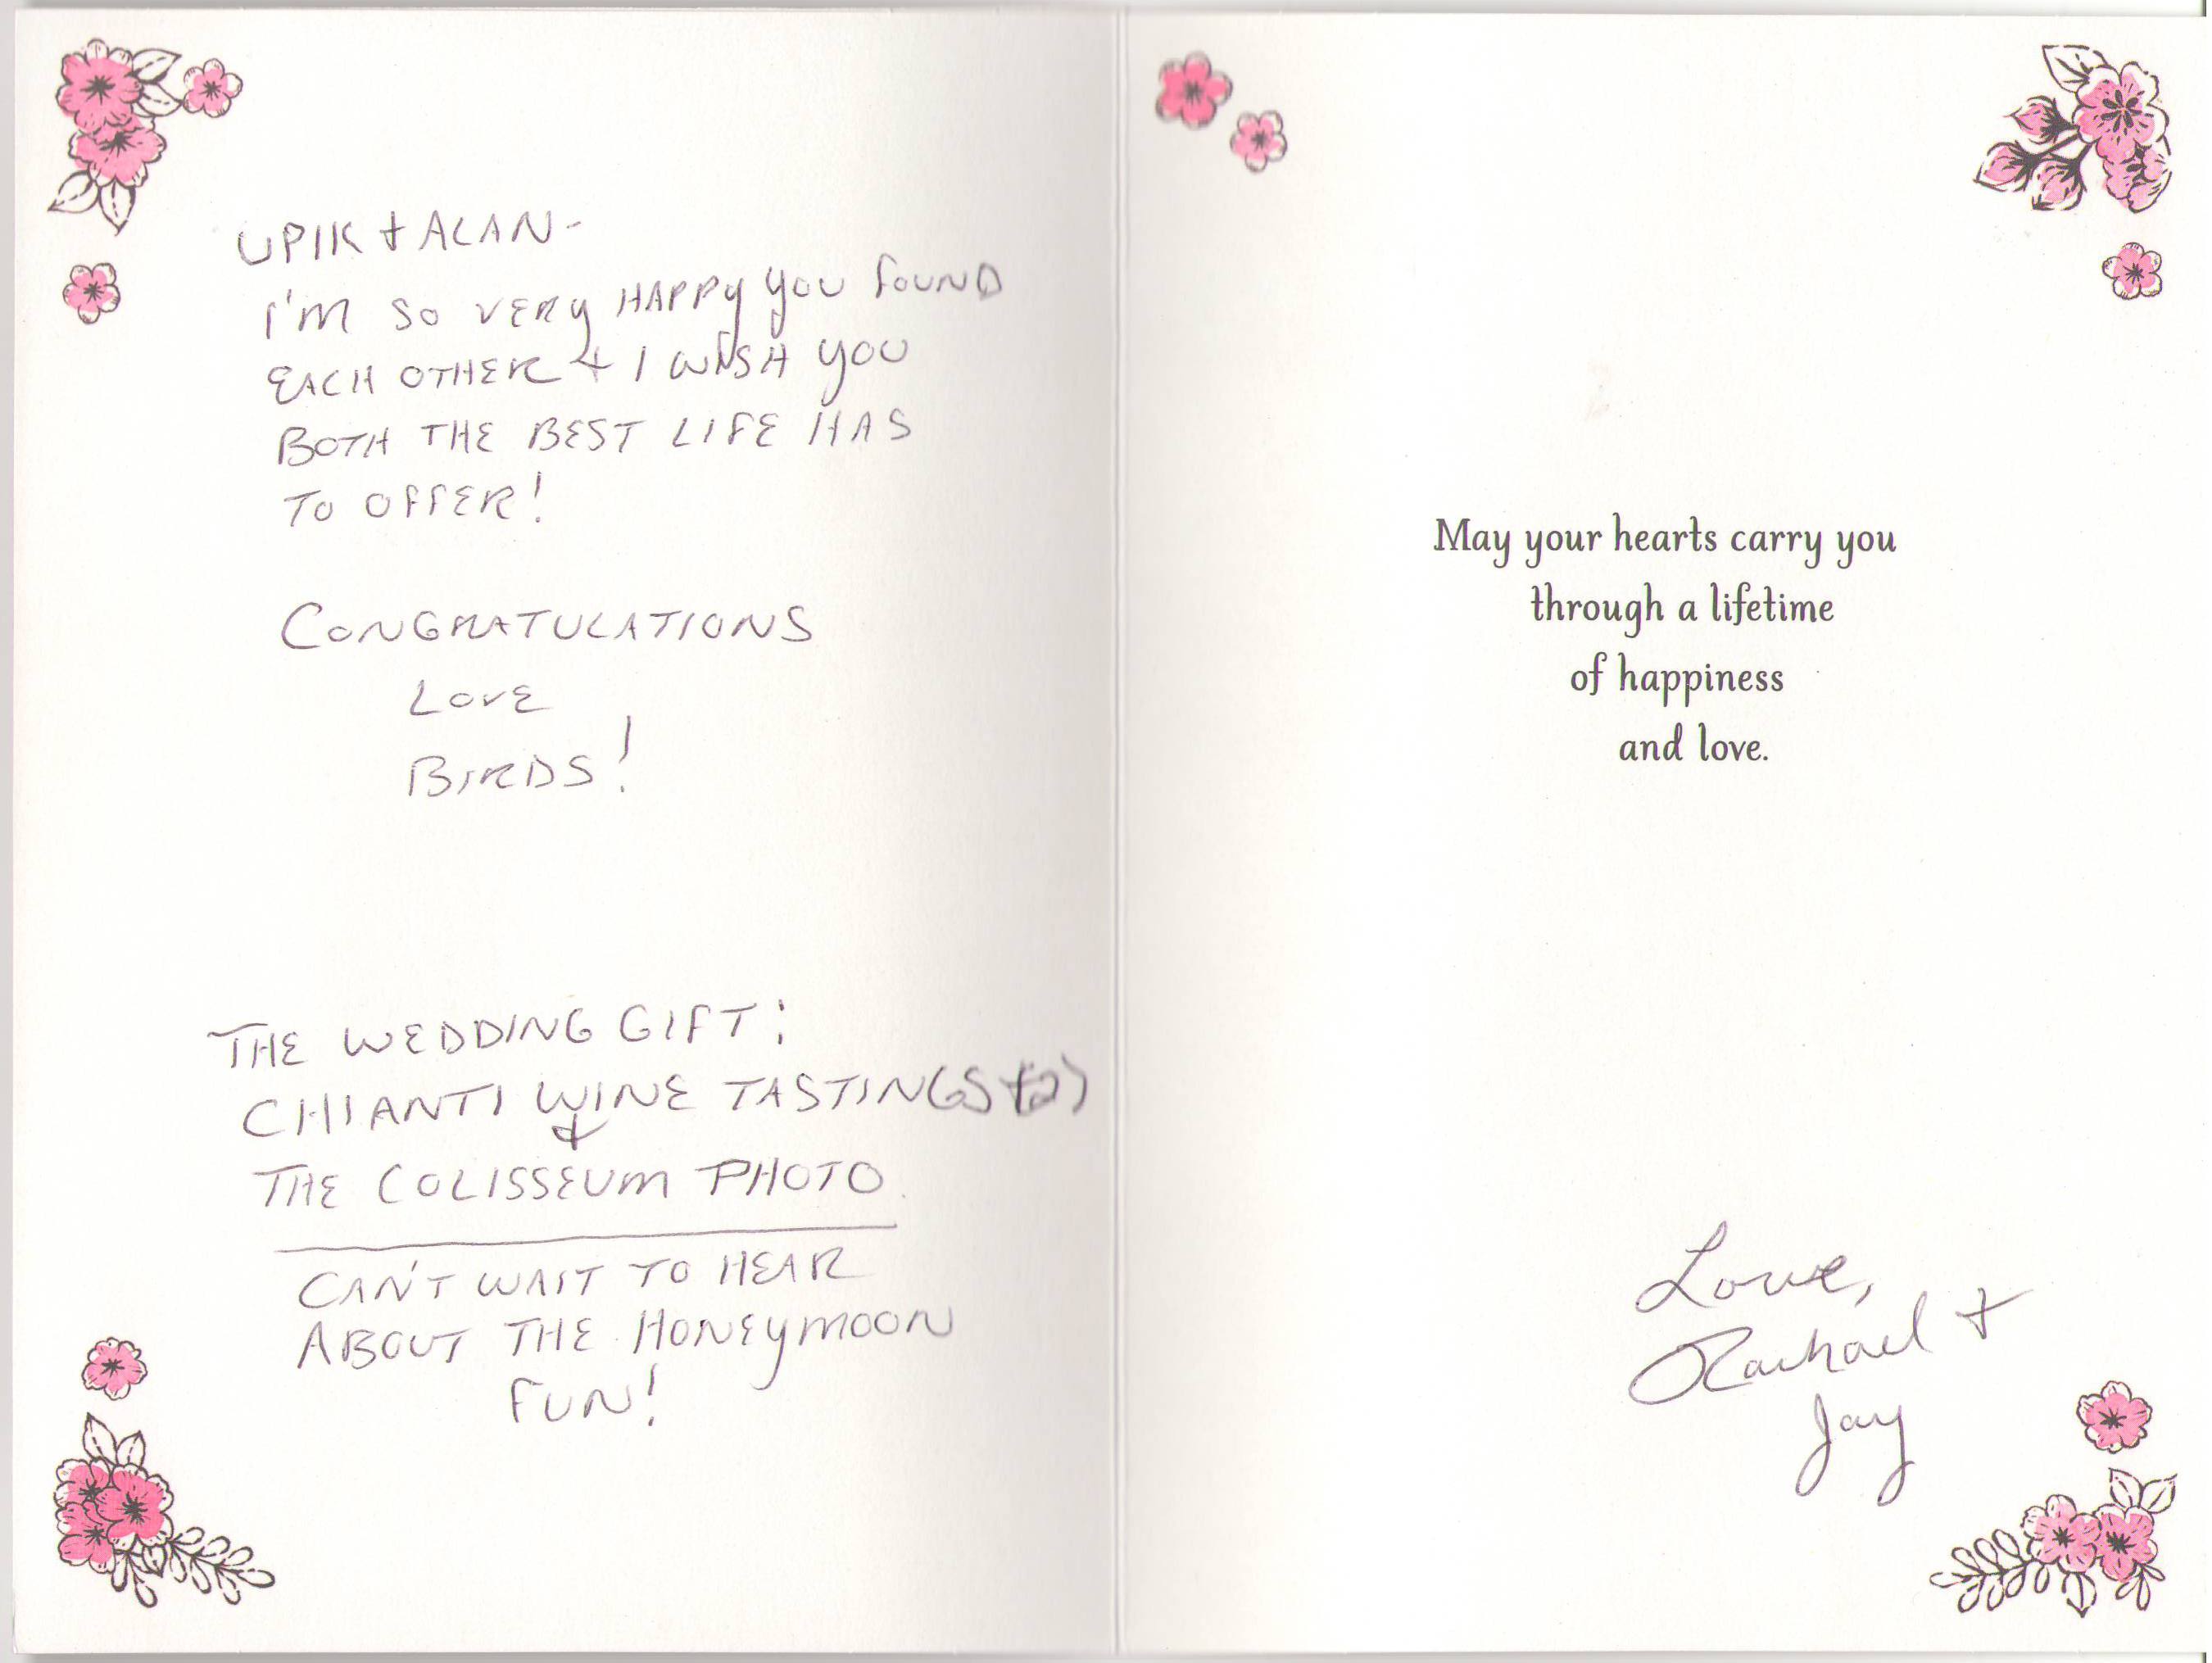 UPIK + ALAN-
I'M SO VERY HAPPY YOU FOUND
EACH OTHER + I WISH YOU
BOTH THE BEST LIFE HAS
TO OFFER!
CONGRATULATIONS
LOVE
BIRDS!
THE WEDDING GIFT:
CHIANTI WINE TASTINGS (2)
+
THE COLISSEUM PHOTO.
CAN'T WAIT TO HEAR
ABOUT THE HONEYMOON
FUN!
May your hearts carry you
through a lifetime
of happiness
and love.
Love,
Rachael +
Jay